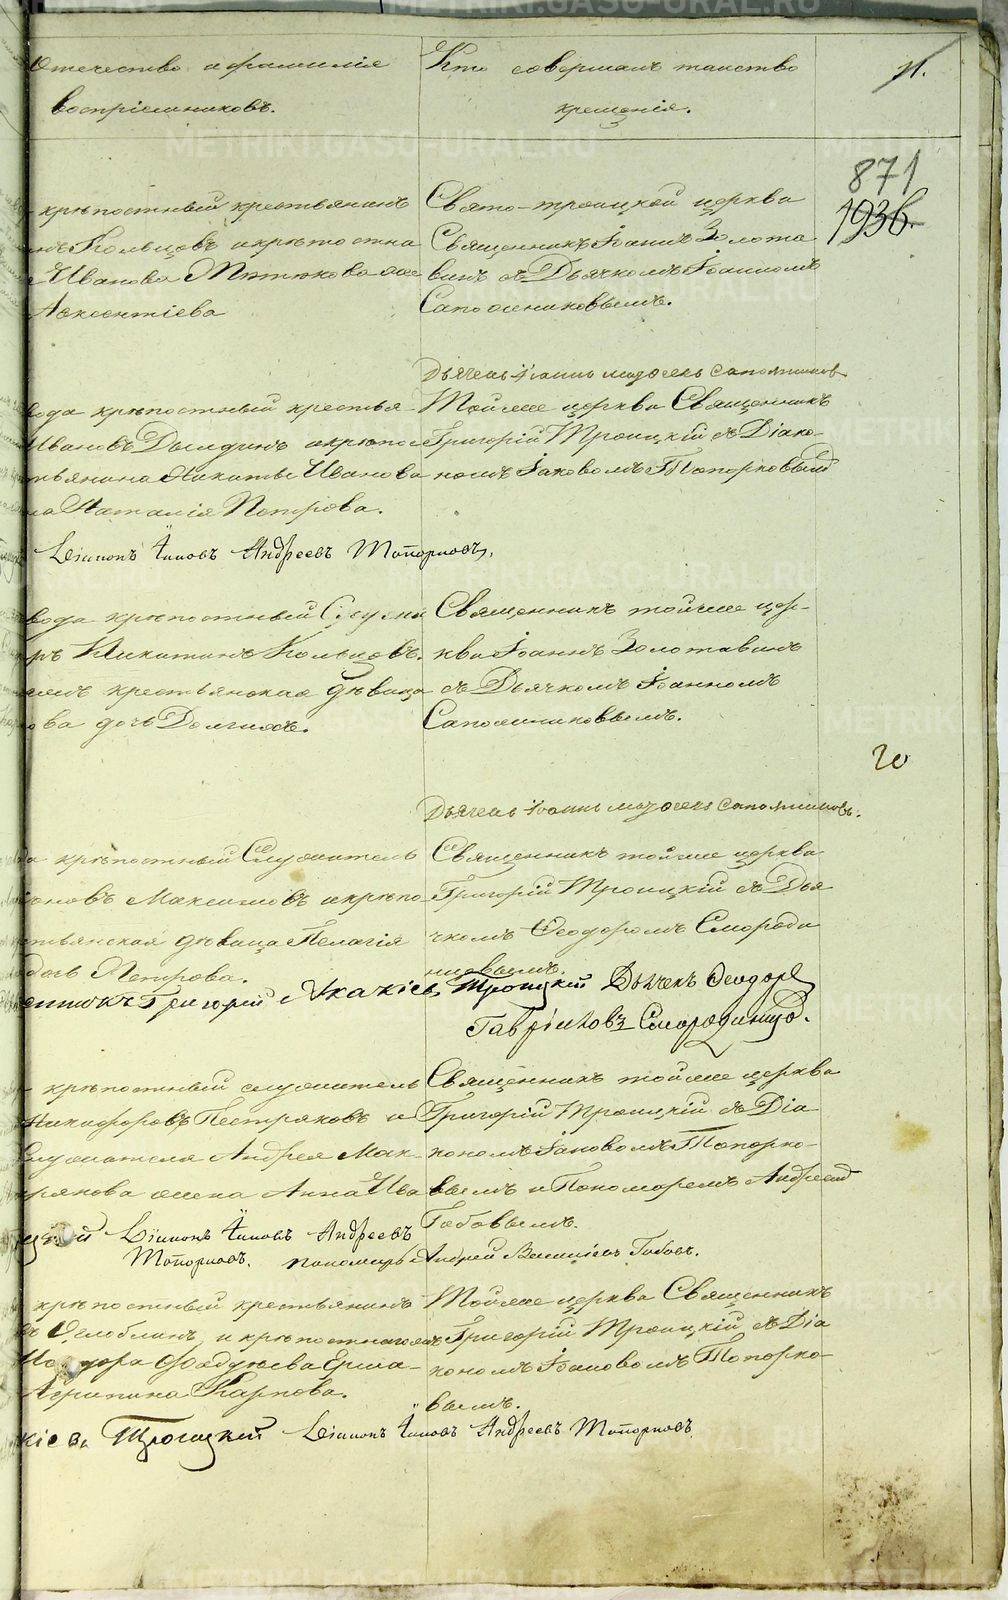 Отечество и фамилія
воспріемниковъ.
Кто совершалъ таинство
крещенія.
871
1936.
крѣпостный крестьянинъ
Кольцовъ и крѣпостна
Иванова Пяткова
Авксентіева
Свято-троицкой церкви
Священникъ Іоаннъ Золота
винъ съ Дьячкомъ Іоанномъ
Сапожниковымъ.
Дьячекъ Іоаннъ Сапожниковъ
вода крѣпостный крестья-
Ивановъ Дылдинъ и крѣпос
тьянина Никиты Иванова
на Наталія Петрова.
Тойже церкви Священникъ
Григорій Троицкій съ Діако-
номъ Іаковомъ Топорковымъ
Діаконъ Андреевъ Топорковъ.
вода крѣпостный Служи
ръ Никитинъ Кольцовъ.
крестьянская дѣвица
ова дочь Долгихъ.
Священникъ тойже цер-
кви Іоаннъ Золотавинъ
съ Дьячкомъ Іоанномъ
Сапожниковымъ.
20
Дьячекъ Іоаннъ Сапожниковъ.
крѣпостный Служитель
новъ Максимовъ и крѣпо
тьянская дѣвица Пелагія
дочь Петрова.
Священникъ тойже церкви
Григорій Троицкій съ Дья
чкомъ Ѳеодоромъ Смороди
нцовымъ.
Григорій Акакіевъ Троицкій Дьячекъ Ѳеодоръ
Гавріиловъ Смородинцовъ.
крѣпостный служитель
Никифоровъ Пестряковъ и
Служителя Андрея Мак-
жена Анна Ива
Священникъ тойже церкви
Григорій Троицкій съ Діа
кономъ Іаковомъ Топорко-
вымъ и Пономаремъ Андреемъ
Бабовымъ.
Діаконъ Андреевъ
Топорковъ. пономарь Андрей
крѣпостный крестьянинъ
Оглоблинъ, и крѣпостнаго
Ѳаддѣева
Агрипина Карпова.
Тойже церкви Священникъ
Григорій Троицкій съ Діа
кономъ Іаковомъ Топорко-
вымъ.
Троицкій Діаконъ Андреевъ Топорковъ